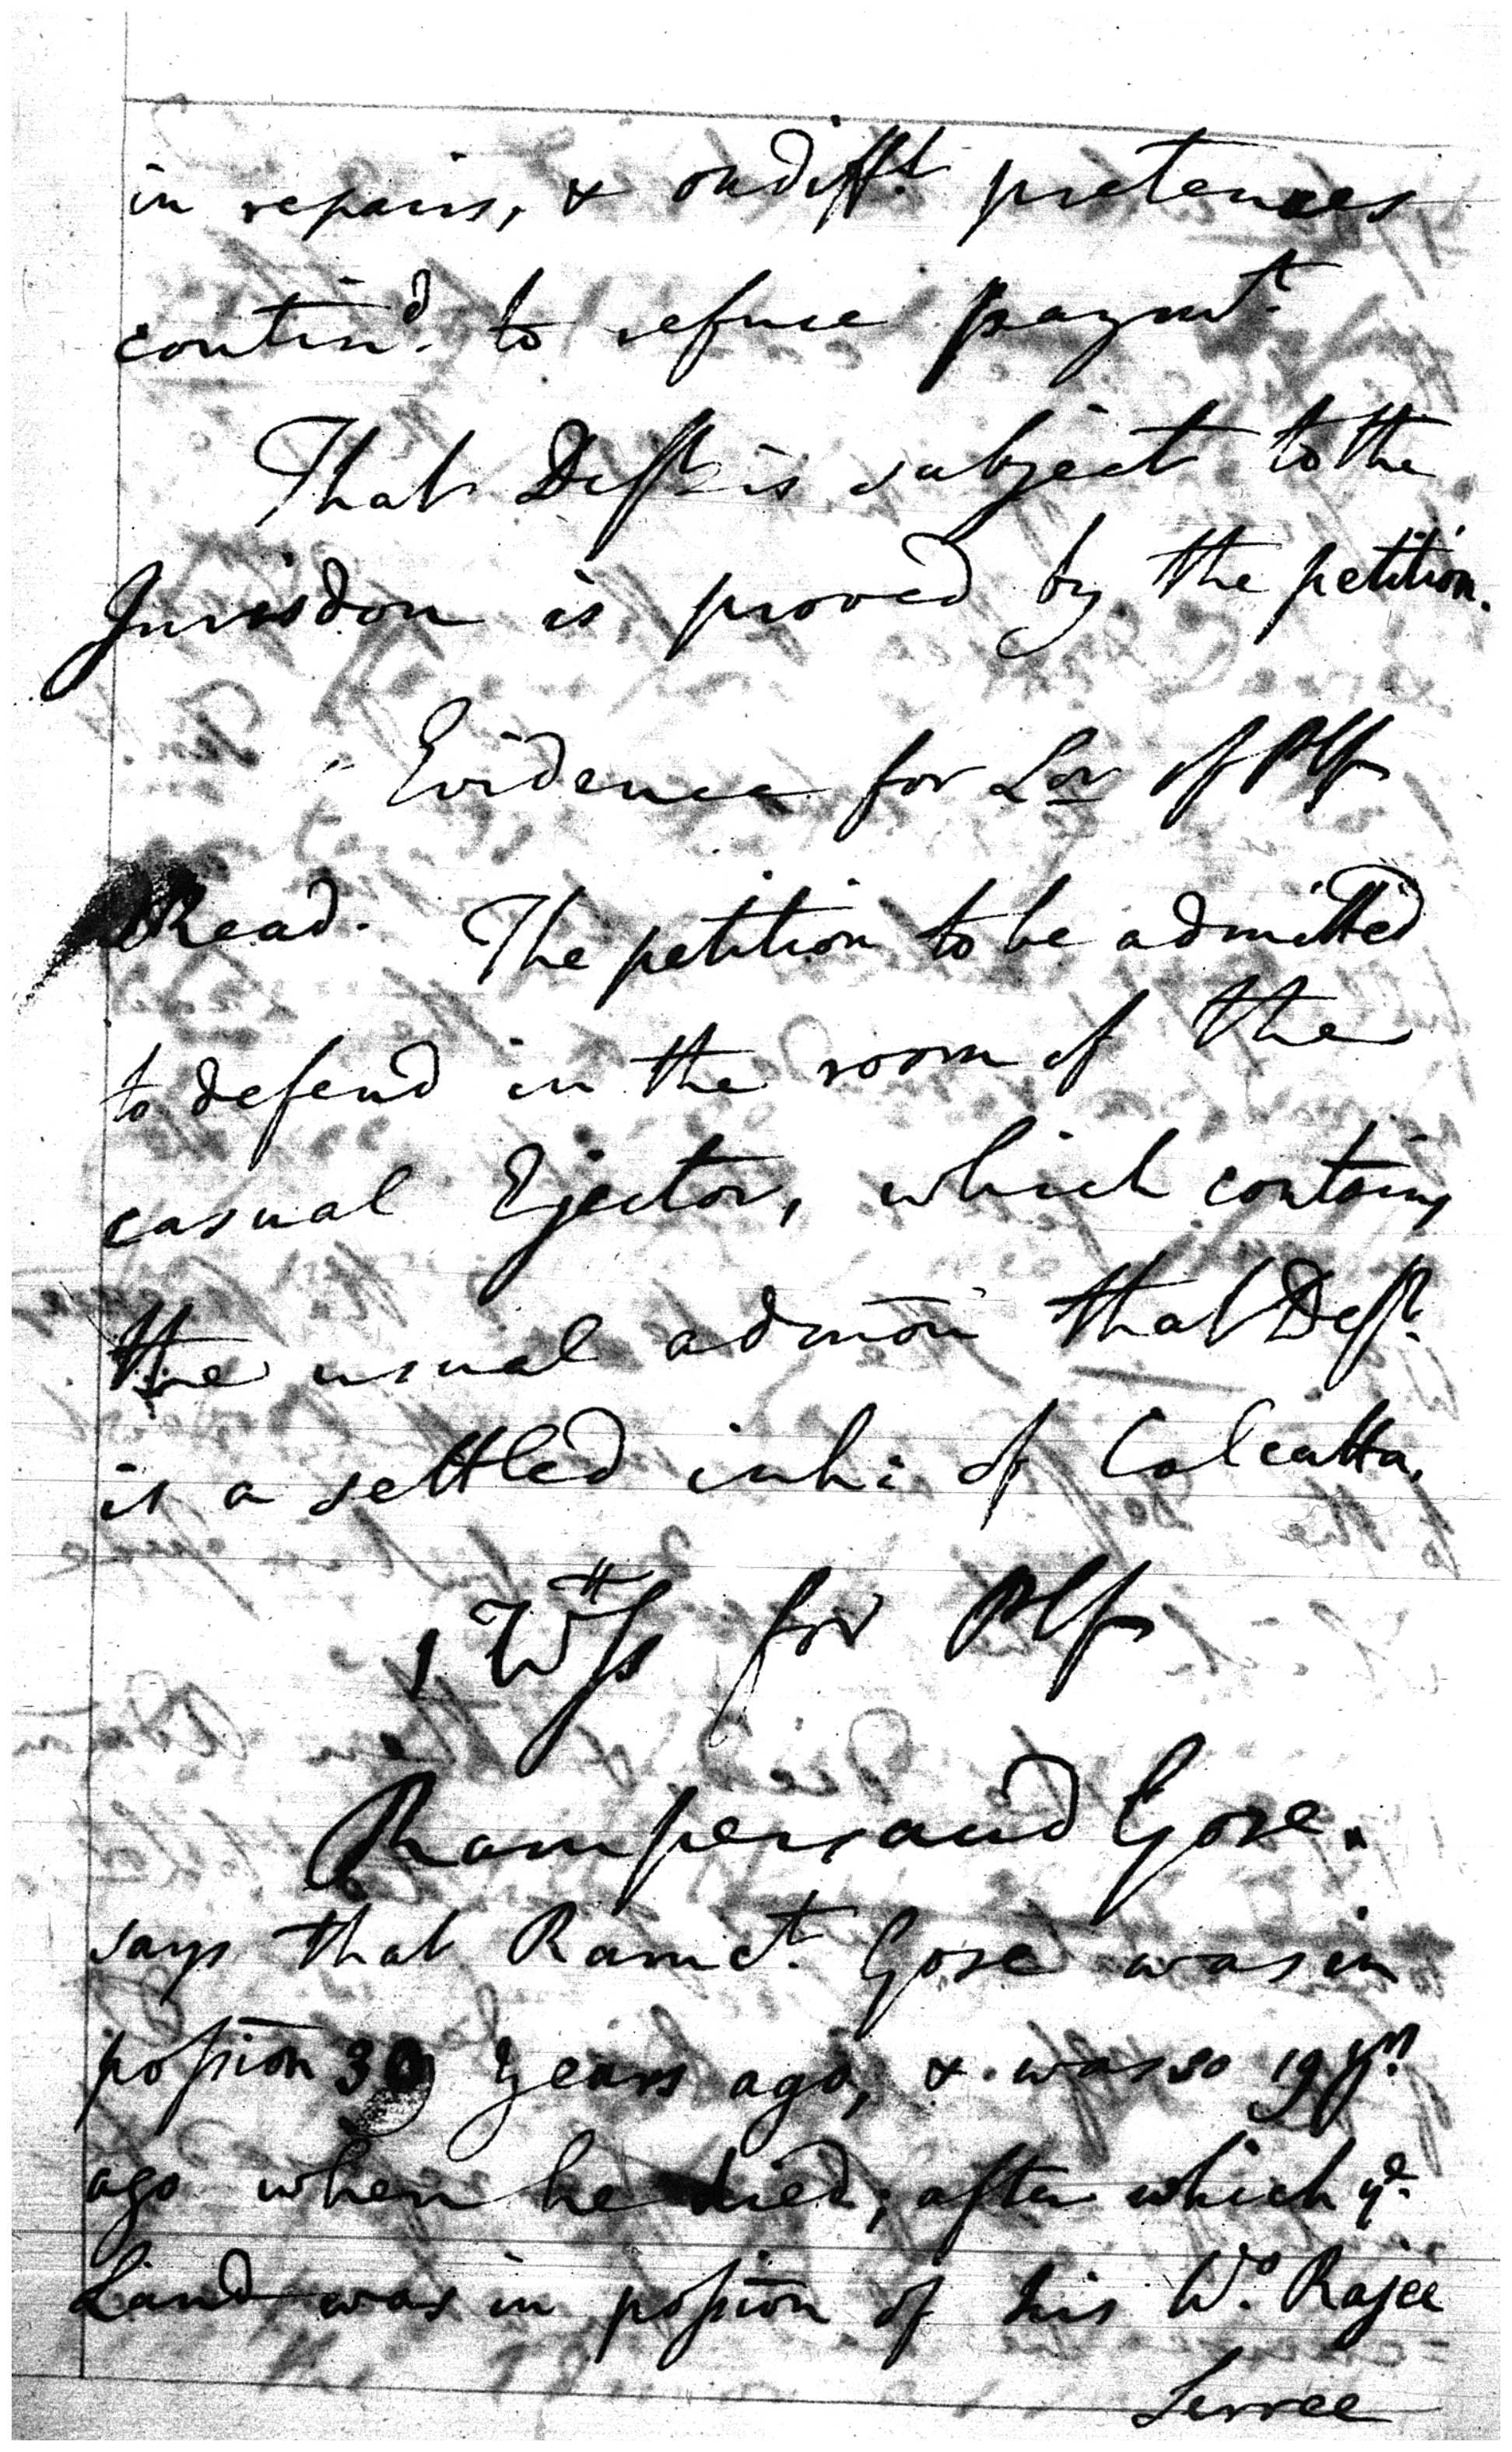 in repairs, & on difft. pretences
contind. to refuse paymt.
That Deft is subject to the
Jurisdon is proved by the petition.
Evidence for Lr of Plf
Read. The petition to be admitted
to defend in the room of the
casual Ejector, which contains
the usual admōn that Deft.
is a settled inhi: of Calcutta.
1 Wtss for Plf
Rampersaud Gose.
says that Ramct. Gose was in
possion 30 years ago, & was so 19 yrs.
ago when he died; after which ye.
Land was in possion of his Wo. Rajee
Serree